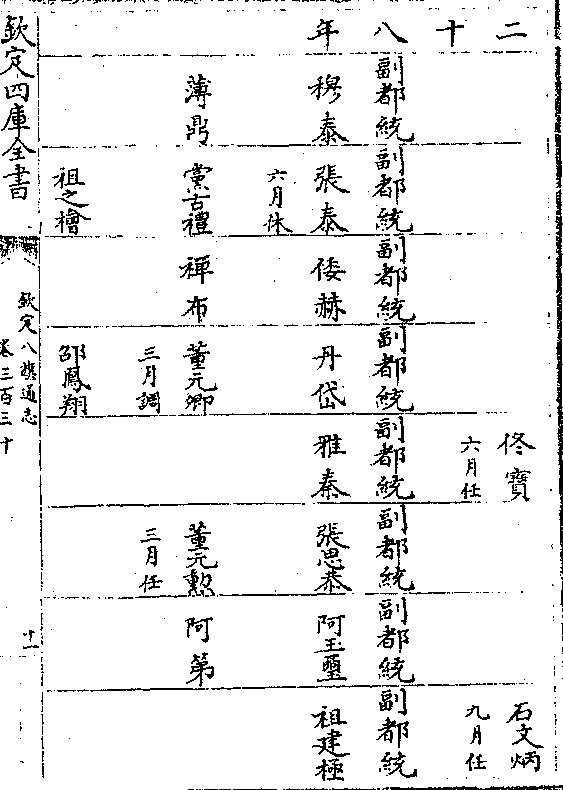 二十八年
佟寶
六月任
石文炳
九月任
副都統
穆泰
薄鼎
副都統
張泰
六月休
黨古禮
祖之檜
副都統
倭赫
禪布
副都統
丹岱
董元卿
三月調
邵鳳翔
副都統
雅秦
副都統
張思恭
董元勲
三月任
副都統
阿玉璽
阿第
副都統
祖建極
欽定四庫全書
欽定八旗通志
卷三百三十
十一